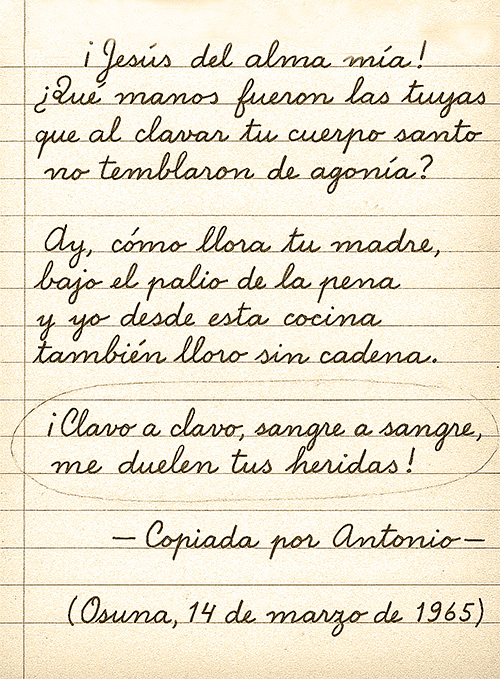 ¡Jesús del alma mía!
¿Qué manos fueron las tuyas
que al clavar tu cuerpo santo
no temblaron de agonía?
Ay, cómo llora tu madre,
bajo el palio de la pena
y yo desde esta cocina
también lloro sin cadena.
¡Clavo a clavo, sangre a sangre,
me duelen tus heridas!
— Copiada por Antonio —
(Osuna, 14 de marzo de 1965)